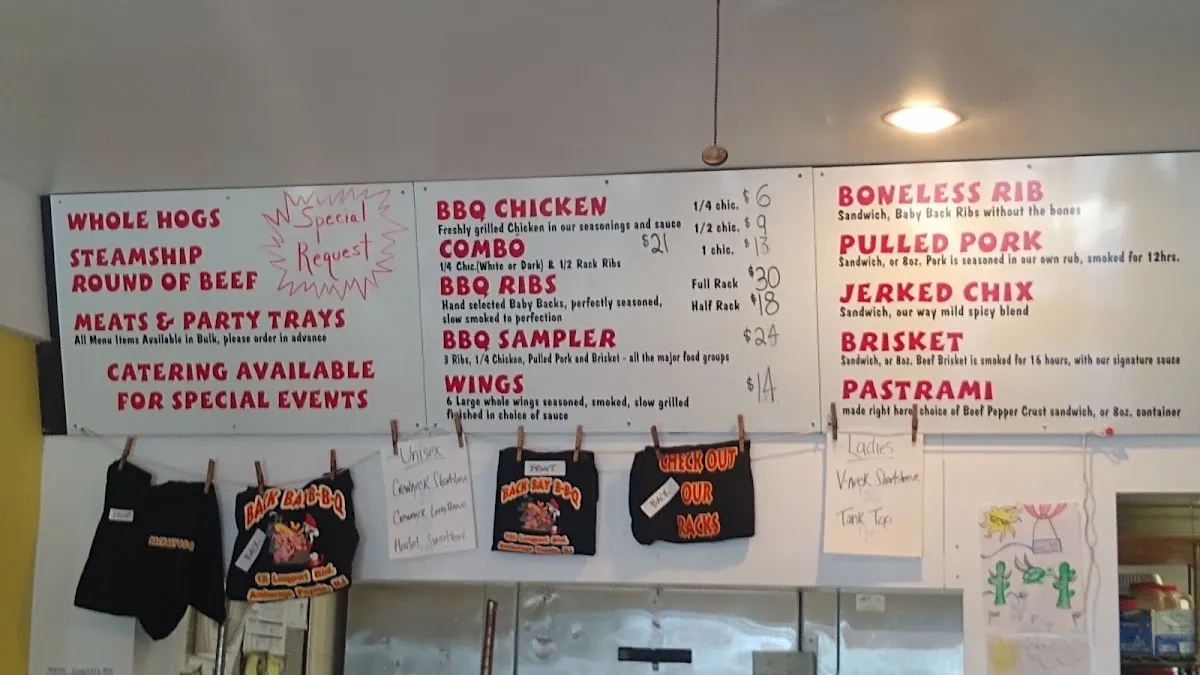 WHOLE HOGS
STEAMSHIP
ROUND OF BEEF
Special
Request
MEATS & PARTY TRAYS
All Menu Items Available in Bulk, please order in advance
CATERING AVAILABLE
FOR SPECIAL EVENTS
BBQ CHICKEN 1/4 chic. $6
Freshly grilled Chicken in our seasonings and sauce 1/2 chic. $9
COMBO $21 1 chic. $13
1/4 Chic.(White or Dark) & 1/2 Rack Ribs
BBQ RIBS Full Rack $30
Hand selected Baby Backs, perfectly seasoned, Half Rack $18
slow smoked to perfection
BBQ SAMPLER $24
3 Ribs, 1/4 Chicken, Pulled Pork and Brisket - all the major food groups
WINGS $14
6 Large whole wings seasoned, smoked, slow grilled
finished in choice of sauce
BONELESS RIB
Sandwich, Baby Back Ribs without the bones
PULLED PORK
Sandwich, or 8oz. Pork is seasoned in our own rub, smoked for 12hrs.
JERKED CHIX
Sandwich, our way mild spicy blend
BRISKET
Sandwich, or 8oz. Beef Brisket is smoked for 16 hours, with our signature sauce
PASTRAMI
made right here, choice of Beef Pepper Crust sandwich, or 8oz. container
FRONT
BACK BAY B-B-Q
BACK
Longport Blvd.
Unisex
Crewneck Shortsleeve
Crewneck Longsleeve
FRONT
BACK BAY B-B-Q
CHECK OUT
OUR
RACKS
BACK
Ladies
V-neck Shortsleeve
Tank Top